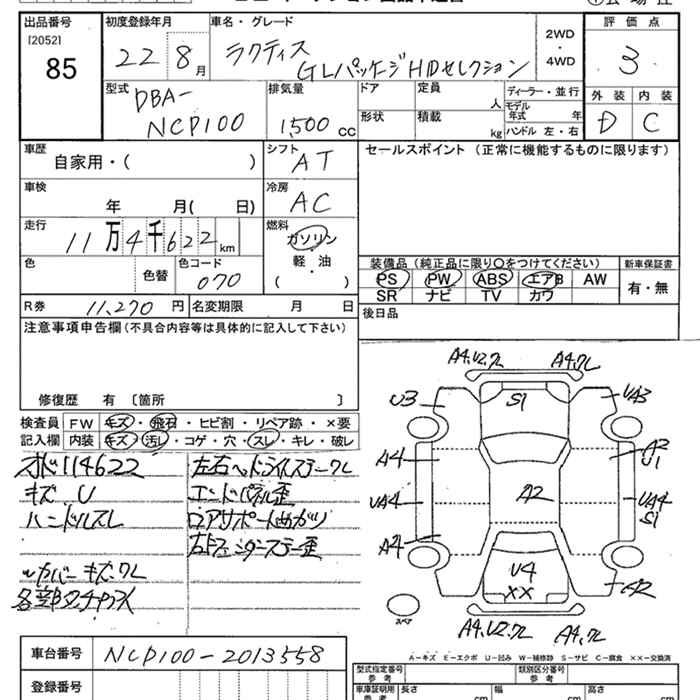 出品番号 初度登録年月 車名・グレード 評価点
[2052]
85 22 8月 ラクティス 2WD・4WD 3
GLパッケージHIDセレクション
型式 排気量 ドア 定員 人 ディーラー・並行 外装 内装
DBA-
NCP100 1500cc 形状 積載 kg モデル年式 年 D C
ハンドル 左・右
車歴 シフト セールスポイント (正常に機能するものに限ります)
自家用・( ) AT
車検 冷房
年 月( 日) AC
走行 燃料
11万4千622km ガソリン
軽・油
色 色替 色コード ( ・ )
070
装備品 (純正品に限り○をつけてください) 新車保証書
PS PW ABS エアB AW 有・無
SR ナビ TV カワ
R券 11,270円 名変期限 月 日 後日品
注意事項申告欄 (不具合内容等は具体的に記入して下さい)
修復歴 有 [箇所 ]
検査員 FW キズ・飛石・ヒビ割・リペア跡・×要
記入欄 内装 キズ・汚レ・コゲ・穴・スレ・キレ・破レ
オド114622 左右ヘッドライトステークレ
キズ U エンドパネル歪
ハンドルスレ ロアサポート曲がり
キズ・クレ
A4,U2,クレ A4,クレ
U3 S1 UA3
A4 A2
U1
UA4 A2 UA4
S1
A4 U4
XX
スペア
A4,U2,クレ A4,クレ
A−キズ E−エクボ U−凹み W−補修跡 S−サビ C−腐食 ××−交換済
車台番号 NCP100-2013558
型式指定番号 参考 類別区分番号 参考
登録番号 車庫証明用 参考 長さ cm 幅 cm 高さ cm